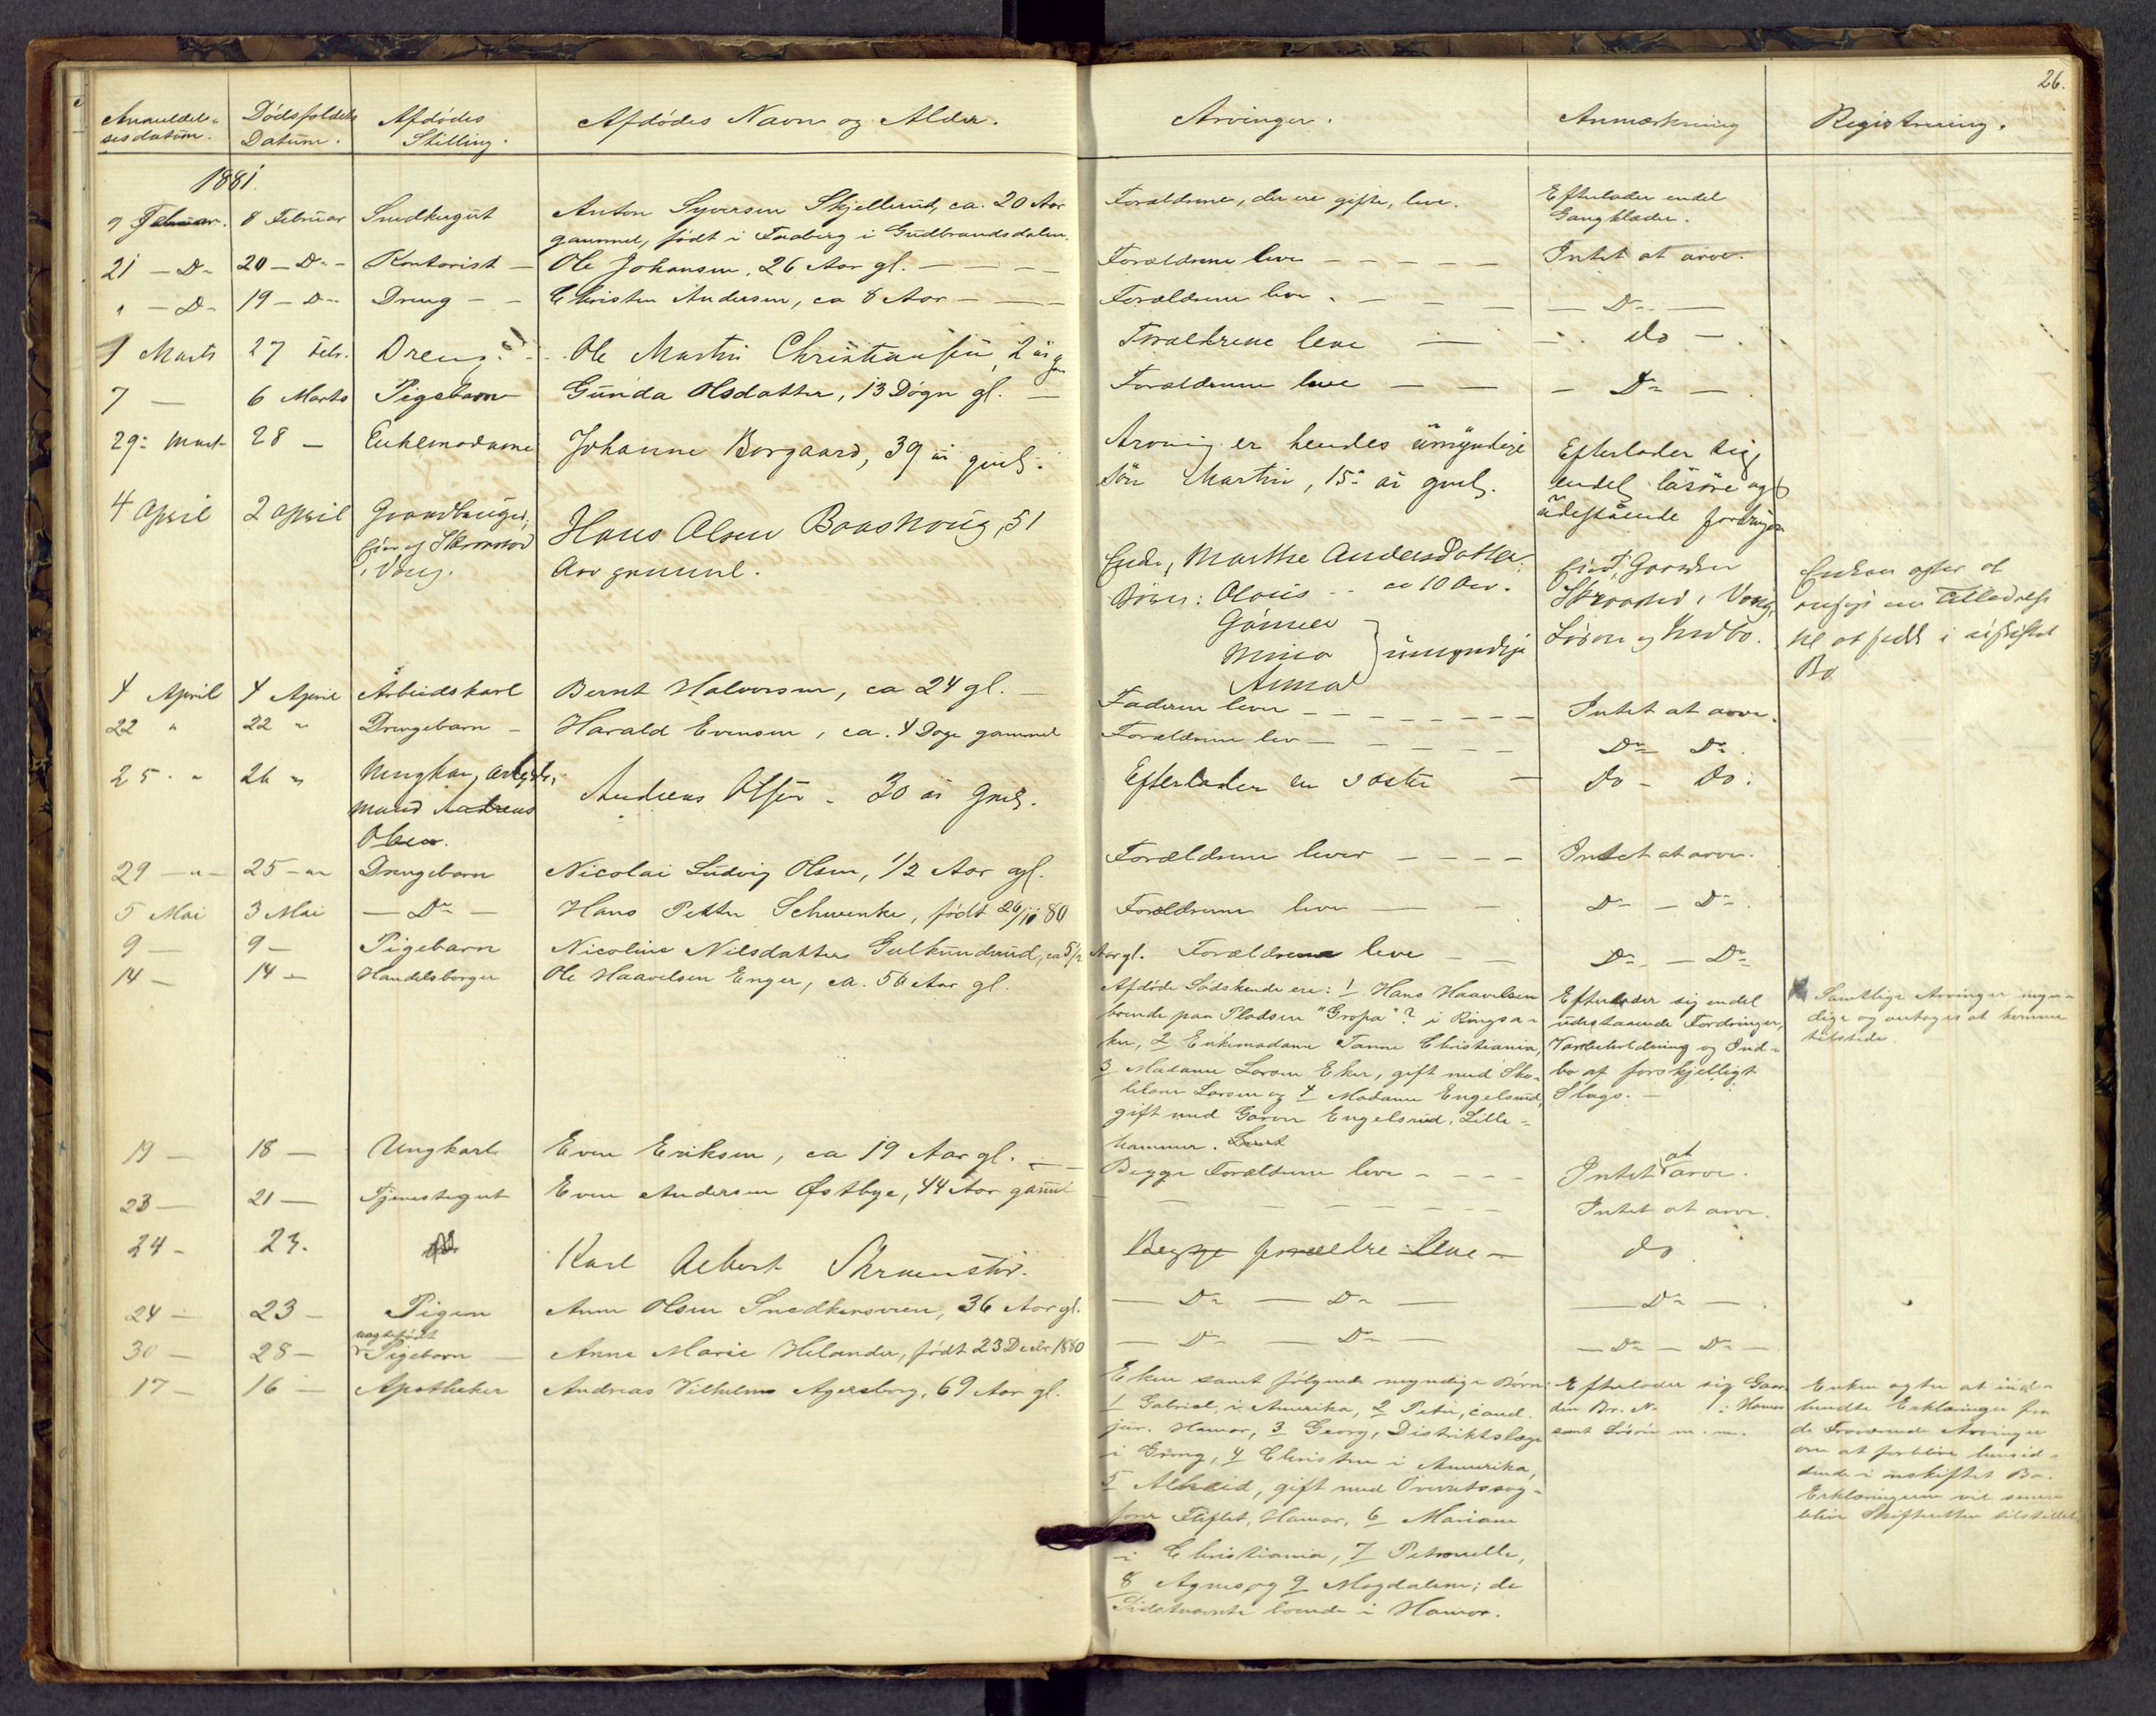 26.
Anmeldel-
sesdatum.
Dödsfaldets
Datum.
Afdödes
Stilling.
Afdödes Navn og Alder.
Arvinger.
Anmærkning
Registrering.
1881.
9 Februar. 8 Februar Snedkergut Anton Syversen Skjellerud, ca. 20 Aar Forældrene, der ere gifte, leve. Efterlader endel
gammel, födt i Faaberg i Gudbrandsdalen. Gangklæder.
21 — Do 20 — Do — Kontorist — Ole Johansen, 26 Aar gl. — Forældrene leve — Intet at arve.
" — Do 19 — Do Dreng — Christen Andersen, ca 8 Aar — Forældrene leve — Do —
1 Marts 27 Febr. Dreng Ole Martin Christiansen, 2 år Forældrene leve — do —
7 — 6 Marts Pigebarn Gunda Olsdatter, 13 Dögn gl. — Forældrene leve — Do —
29: Mart 28 — Enkemadame Johanne Borgaard, 39 år gml. Arving er hendes umyndige Efterlader sig
sön Martin, 15 år gml. endel lösöre og
udestående fordringer
4 April 2 April Gaardbruger, Hans Olsen Baashoug, 51
Eier af Skraastad
i Vang. Aar gammel.
Enke, Marthe Andersdatter. Eied. Gaarden Enken agter at
Börn: Olaus ca 10 Aar. Skraastad i Vang, ansöge om Tilladelse
Gunner Lösöre og Indbo. til at sidde i uskiftet
Mina } umyndige Bo
Anna
4 April 4 April Arbeidskarl Bernt Halvorsen, ca 24 gl. — Faderen lever — Intet at arve.
22 " 22 " Drengebarn — Harald Evensen, ca. 4 Dage gammel Forældrene lev — Do Do.
25 " 26 " Ungkar, arbeids-
mand Andreas
Olsen.
Andreas Olsen - 30 år gml. Efterlader en søster — do — do.
29 — " — 25 — " Drengebarn Nicolai Ludvig Olsen, 1/2 Aar gl. Forældrene lever — Intet at arve.
5 Mai 3 Mai — Do — Hans Petter Schwenke, födt 26/10 80 Forældrene leve — Do — Do.
9 — 9 — Pigebarn Nicoline Nilsdatter Gulkundrud, ca 5 1/2 Aar gl. Forældrene leve — Do — Do
14 — 14 — Handelsborger Ole Haavelsen Enger, ca. 56 Aar gl.
Afdöde Södskende ere: 1 Hans Haavelsen Efterlader sig endel Samtlige Arvinger myn-
boende paa Pladsen "Gropa"? i Ringsa- udestaaende Fordringer, dige og antages at komme
ker, 2 Enkemadame Tanne Christiania, Varebeholdning og Ind- tilstede
3 Madame Larsen Eker, gift med Sko- bo af forskjelligt
Larsen og 4 Madame Engelsrud, Slags. —
gift med Garver Engelsrud, Lille-
hammer.
19 — 18 — Ungkarl Even Eriksen, ca 19 Aar gl. — Begge Forældrene leve — Intet at arve.
23 — 21 — Tjenestegut Even Andersen Østbye, 44 Aar gammel — Intet at arve.
24 - 23. Karl Albert Begge forældre leve — do
24 — 23 — Pigen Anne Olsen Snedkersveen, 36 Aar gl. — Do — Do — — Do —
30 — 28 — uægtefödt
Pigebarn — Anne Marie Helander, födt 23 Decbr 1880 — Do — Do — — Do — Do —
17 — 16 — Apotheker Andreas Vilhelm Agersborg, 69 Aar gl.
Enken samt fölgende myndige Börn: Efterlader sig Gaar- Enken agter at ind-
1 Gabriel, i Amerika, 2 Peter, cand. den Br. No 1 i Hamar hendte Erklæringer fra
jur. Hamar, 3 Georg, Distriktslæge samt Lösöre m. m. de Fraværende Arvinger
i Grong, 4 Christen i Amerika, om at forblive hensid-
5 Alheid, gift med Overretssag- dende i uskiftet Bo.
förer Hamar, 6 Mariane Erklæringerne vil senere
i Christiania, 7 Petronelle, blive Skifteretten tilstillet
8 Agnes og 9 Magdalene; de
Sidstnævnte boende i Hamar.